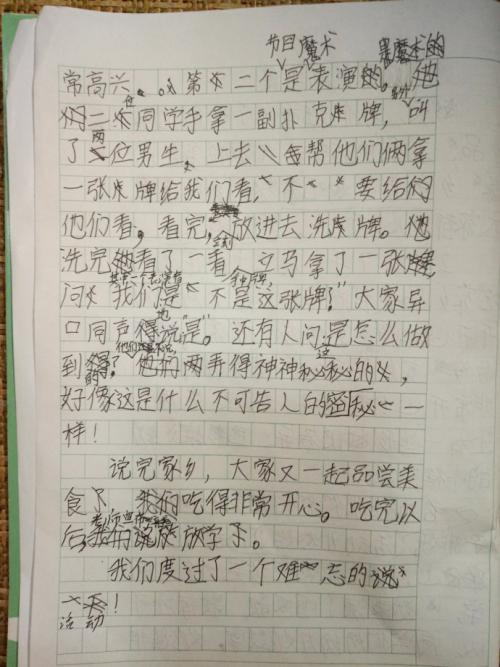 节目 魔术 是魔术的
常高兴。第二个是表演的。他
们二位同学手拿一副扑克牌,叫
了两位男生,上去帮他们俩拿
一张牌给我们看,不要给
他们看,看完,放进去洗牌。他
洗完看了一看,立马拿了一张牌
问我们是"不是这张牌?"大家异
口同声得说"是"。还有人问是怎么做
到的?他们两弄得神神秘秘的,
好像这是什么不可告人的密秘一
样!
说完家乡,大家又一起品尝美
食了,我们吃得非常开心。吃完以
后放学了。
我们度过了一个难忘的说
活动!